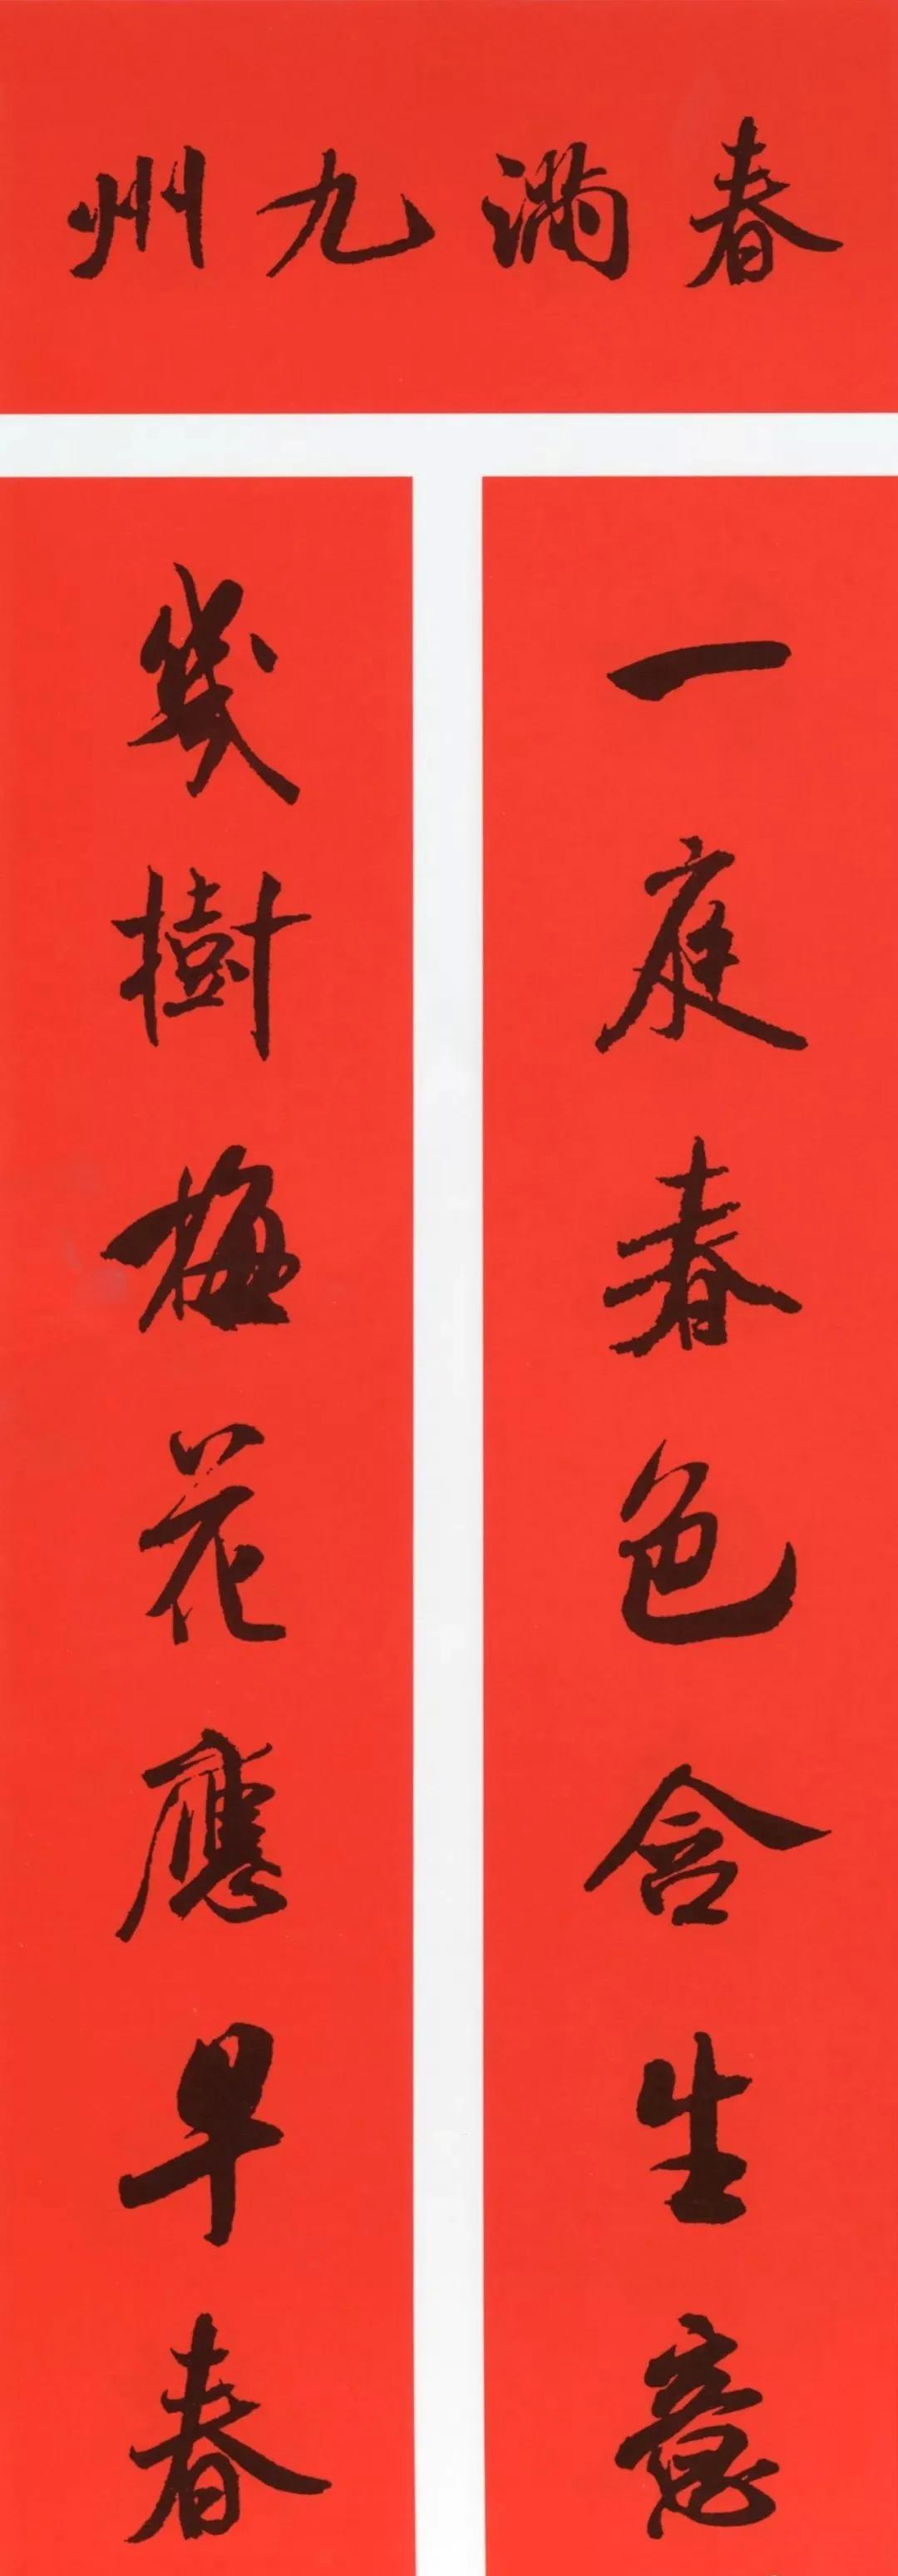 春滿九州
一庭春色含生意
幾樹梅花應早春